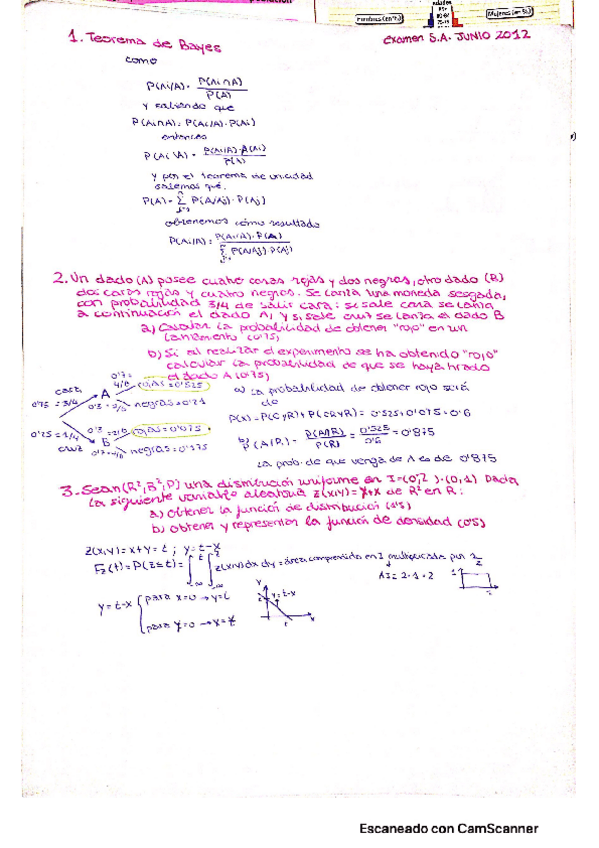 examen S.A. JUNIO 2012
1. Teorema de Bayes
como
P(Ai/A) = P(Ai∩A) / P(A)
y sabiendo que
P(Ai∩A) = P(A/Ai) · P(Ai)
entonces
P(Ai\A) = P(A/Ai) · P(Ai) / P(A)
y por el teorema de unicidad
sabemos que:
P(A) = Σ P(A/Aj) · P(Aj)
obtenemos como resultado
2. Un dado (A) posee cuatro caras rojas y dos negras, otro dado (B)
dos caras rojas y cuatro negras. Se lanza una moneda sesgada,
con probabilidad 3/4 de salir cara: si sale cara se lanza
a continuación el dado A, y si sale cruz se lanza el dado B
a) Calcular la probabilidad de obtener "rojo" en un
lanzamiento (0'75)
b) Si al realizar el experimento se ha obtenido "rojo"
calcular la probabilidad de que se haya tirado
el dado A (0'75)
cara
A
0'75 = 3/4
negras = 0'21
0'25 = 1/4
cruz
B
rojas = 0'075
negras = 0'175
a) La probabilidad de obtener rojo será
de
= 0'525 + 0'075 = 0'6
b) P(A/R) = P(A∩R) / P(R) = 0'525 / 0'6 = 0'875
La prob. de que venga de A es de 0'875
3. Sean (R²,B²,P) una distribución uniforme en I=(0,2)·(0,1) Dada
la siguiente variable aleatoria Z(x,y) = y+x de R² en R:
a) obtener la función de distribución
b) obtener y representar la función de densidad (0'5)
Z(x,y) = x+y = t ; y = t-x
Fz(t) = P(Z≤t) = ∫∫ z(x,y) dx dy = área comprendida en I multiplicada por 1/2
AI = 2·1 = 2
y = t-x
para x=0 → y=t
para y=0 → x=t
y=t-x
Escaneado con CamScanner